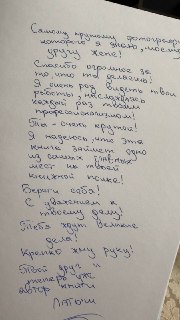 Самому крутому фотографу,
которого я знаю, моему
другу Жене!
Спасибо огромное за
то, что ты делаешь!
Я очень рад видеть твои
работы, наслаждаясь
каждый раз твоим
профессионализмом!
Ты - очень крутой!
Я надеюсь, что эта
книга займет одно
из самых главных
мест на твоей
книжной полке!
Береги себя!
С уважением к
твоему делу!
Тебя ждут великие
дела!
Крепко жму руку!
Твой друг и
теперь уже
автор книги